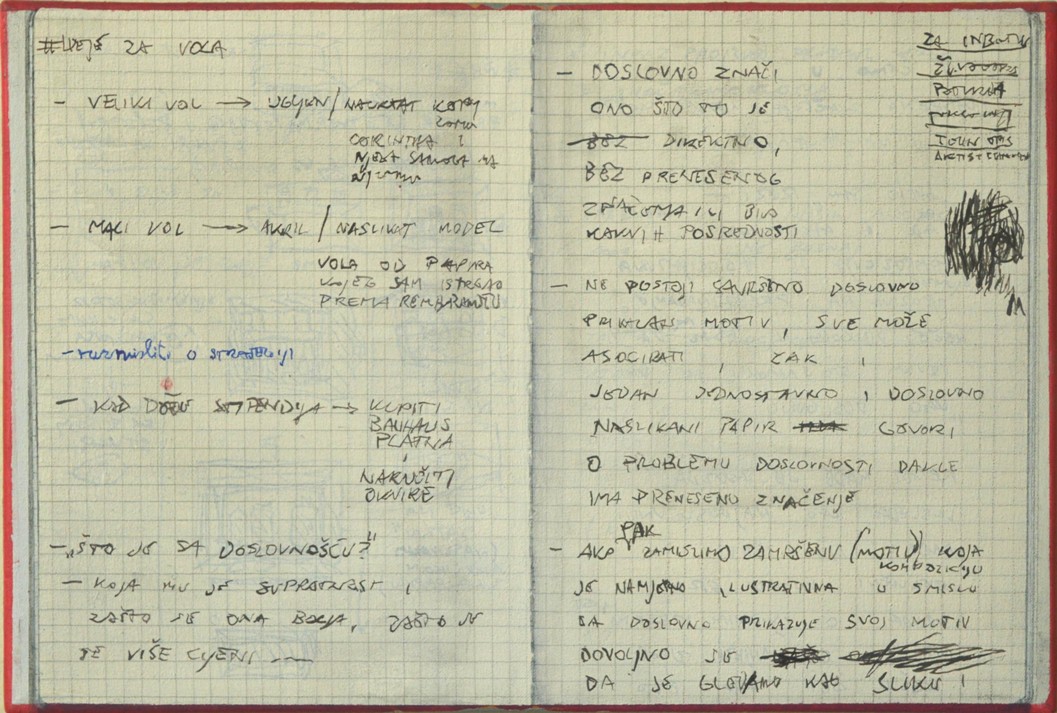 #IDEJE ZA VOLA
- VELIKI VOL → UGLJEN /
CORINTHA I
- MALI VOL → AKRIL / NASLIKAT MODEL
VOLA OD PAPIRA
KOJEG SAM ISTRGAO
PREMA REMBRANDTU
- razmisliti o STRATEGIJI
- KAD DOĐE STIPENDIJA → KUPITI
BAUHAUS
PLATNA
I
NARUČITI
OKVIRE
- „ŠTO JE SA DOSLOVNOŠĆU?"
- KOJA MU JE SUPROTNOST I
ZAŠTO JE ONA BOLJA, ZAŠTO JE
SE VIŠE CIJENI
ZA INBOX
- DOSLOVNO ZNAČI
ONO ŠTO TO JE
BEZ DIREKTNO,
BEZ PRENESENOG
ZNAČENJA ILI BILO
KAKVIH POSREDNOSTI
- NE POSTOJI SAVRŠENO DOSLOVNO
PRIKAZAN MOTIV, SVE MOŽE
ASOCIRATI, ČAK I
JEDAN JEDNOSTAVNO I DOSLOVNO
NASLIKANI PAPIR GOVORI
O PROBLEMU DOSLOVNOSTI DAKLE
IMA PRENESENO ZNAČENJE
- AKO PAK ZAMISLIMO ZAMRŠENU (MOTIV) KOMPOZICIJU KOJA
JE NAMJERNO ILUSTRATIVNA U SMISLU
DA DOSLOVNO PRIKAZUJE SVOJ MOTIV
DOVOLJNO JE
DA JE GLEDAMO KAO SLIKU I